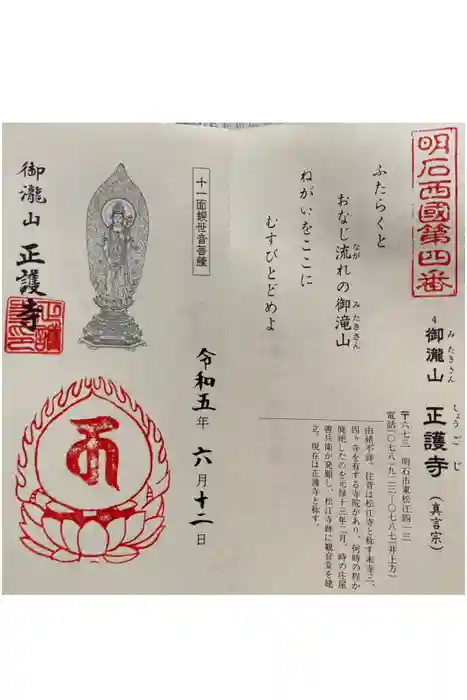 明石西國第四番
4 御瀧山 正護寺 (真言宗)
みたきさん しょうごじ
〒六七三 明石市東松江四一三
電話(〇七八・九二三―〇七八七)(井上方)
ふたらくと
おなじ流れの御滝山
なが みたきさん
ねがいをここに
むすびとどめよ
由緒不詳。往昔は松江寺と称す末寺三、
四ヶ寺を有する寺院があり、何時の程か
廃絶したのを元禄十三年二月、時の庄屋
善兵衛が発願し、松江寺跡に観音堂を建
立。現在は正護寺と称す。
十一面観世音菩薩
令和五年 六月十二日
御瀧山 正護寺